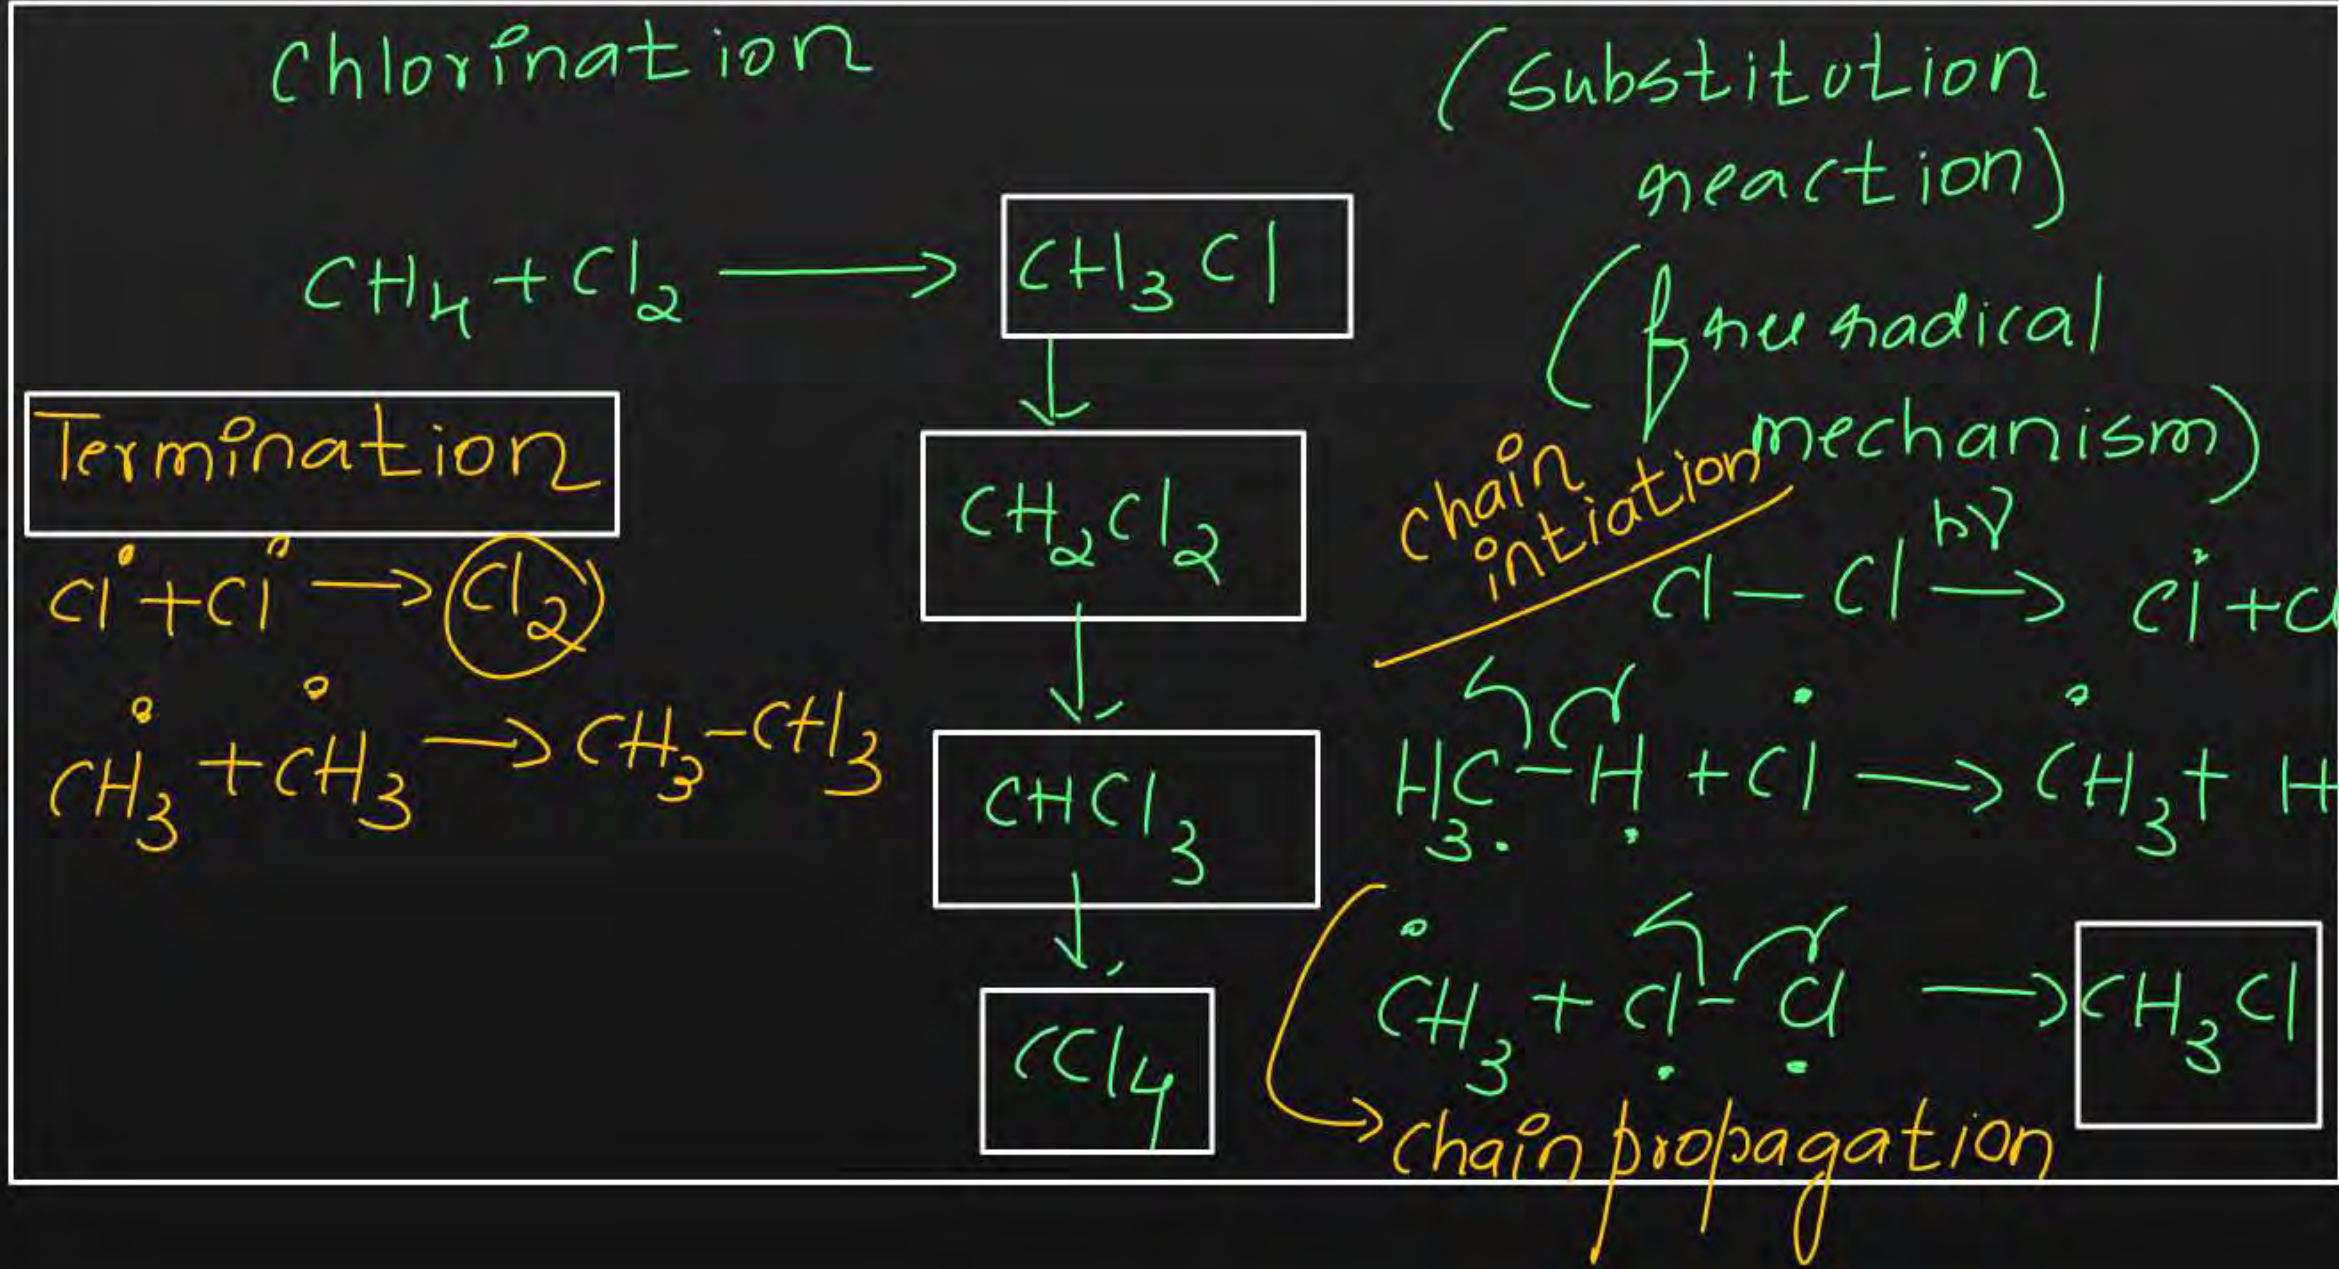 Chlorination
(Substitution
reaction)
(free radical
mechanism)
CH4 + Cl2 ⟶ CH3Cl
CH2Cl2
CHCl3
CCl4
Termination
Cl• + Cl• → Cl2
ĊH3 + ĊH3 → CH3-CH3
chain
intiation
Cl — Cl hν → Cl• + Cl
H3C-H + Cl• → ĊH3 + H
ĊH3 + Cl-Cl → CH3Cl
chain propagation